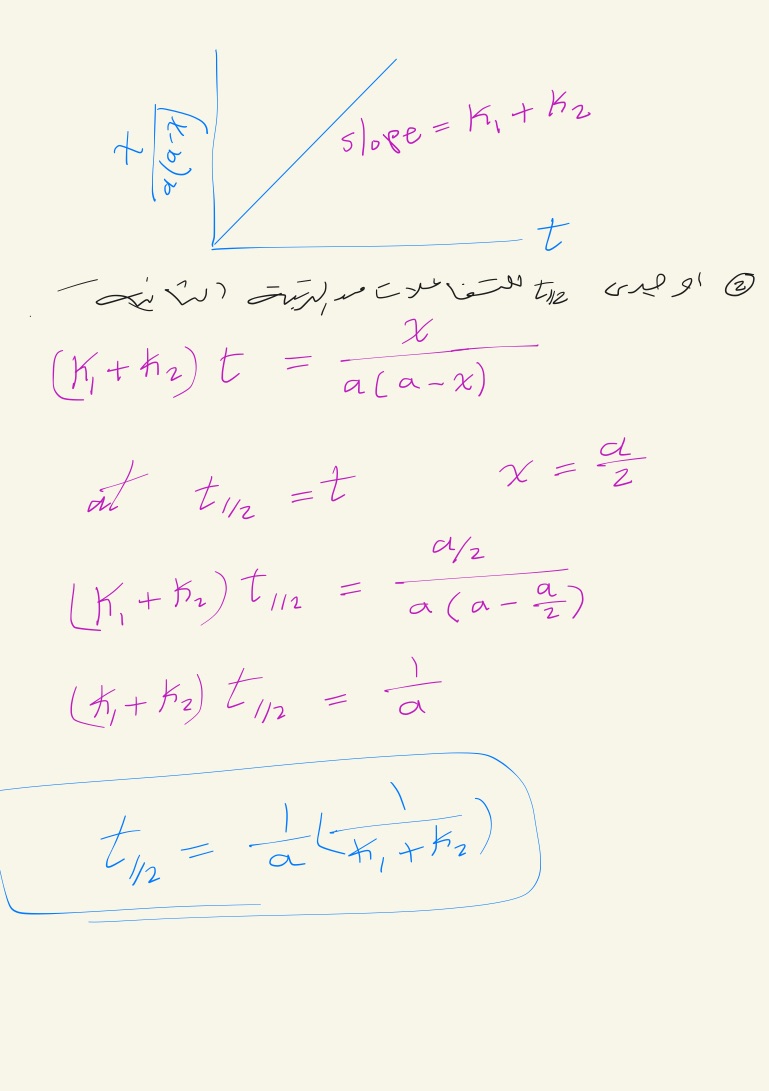 x / a(a-x)
slope = K₁ + K₂
t
② اوجدى t1/2 للتفاعلات من الرتبة الثانية
(K₁ + K₂) t = x / a(a - x)
at t1/2 = t x = a/2
(K₁ + K₂) t1/2 = a/2 / a(a - a/2)
(K₁ + K₂) t1/2 = 1/a
t1/2 = 1/a (1 / K₁ + K₂)